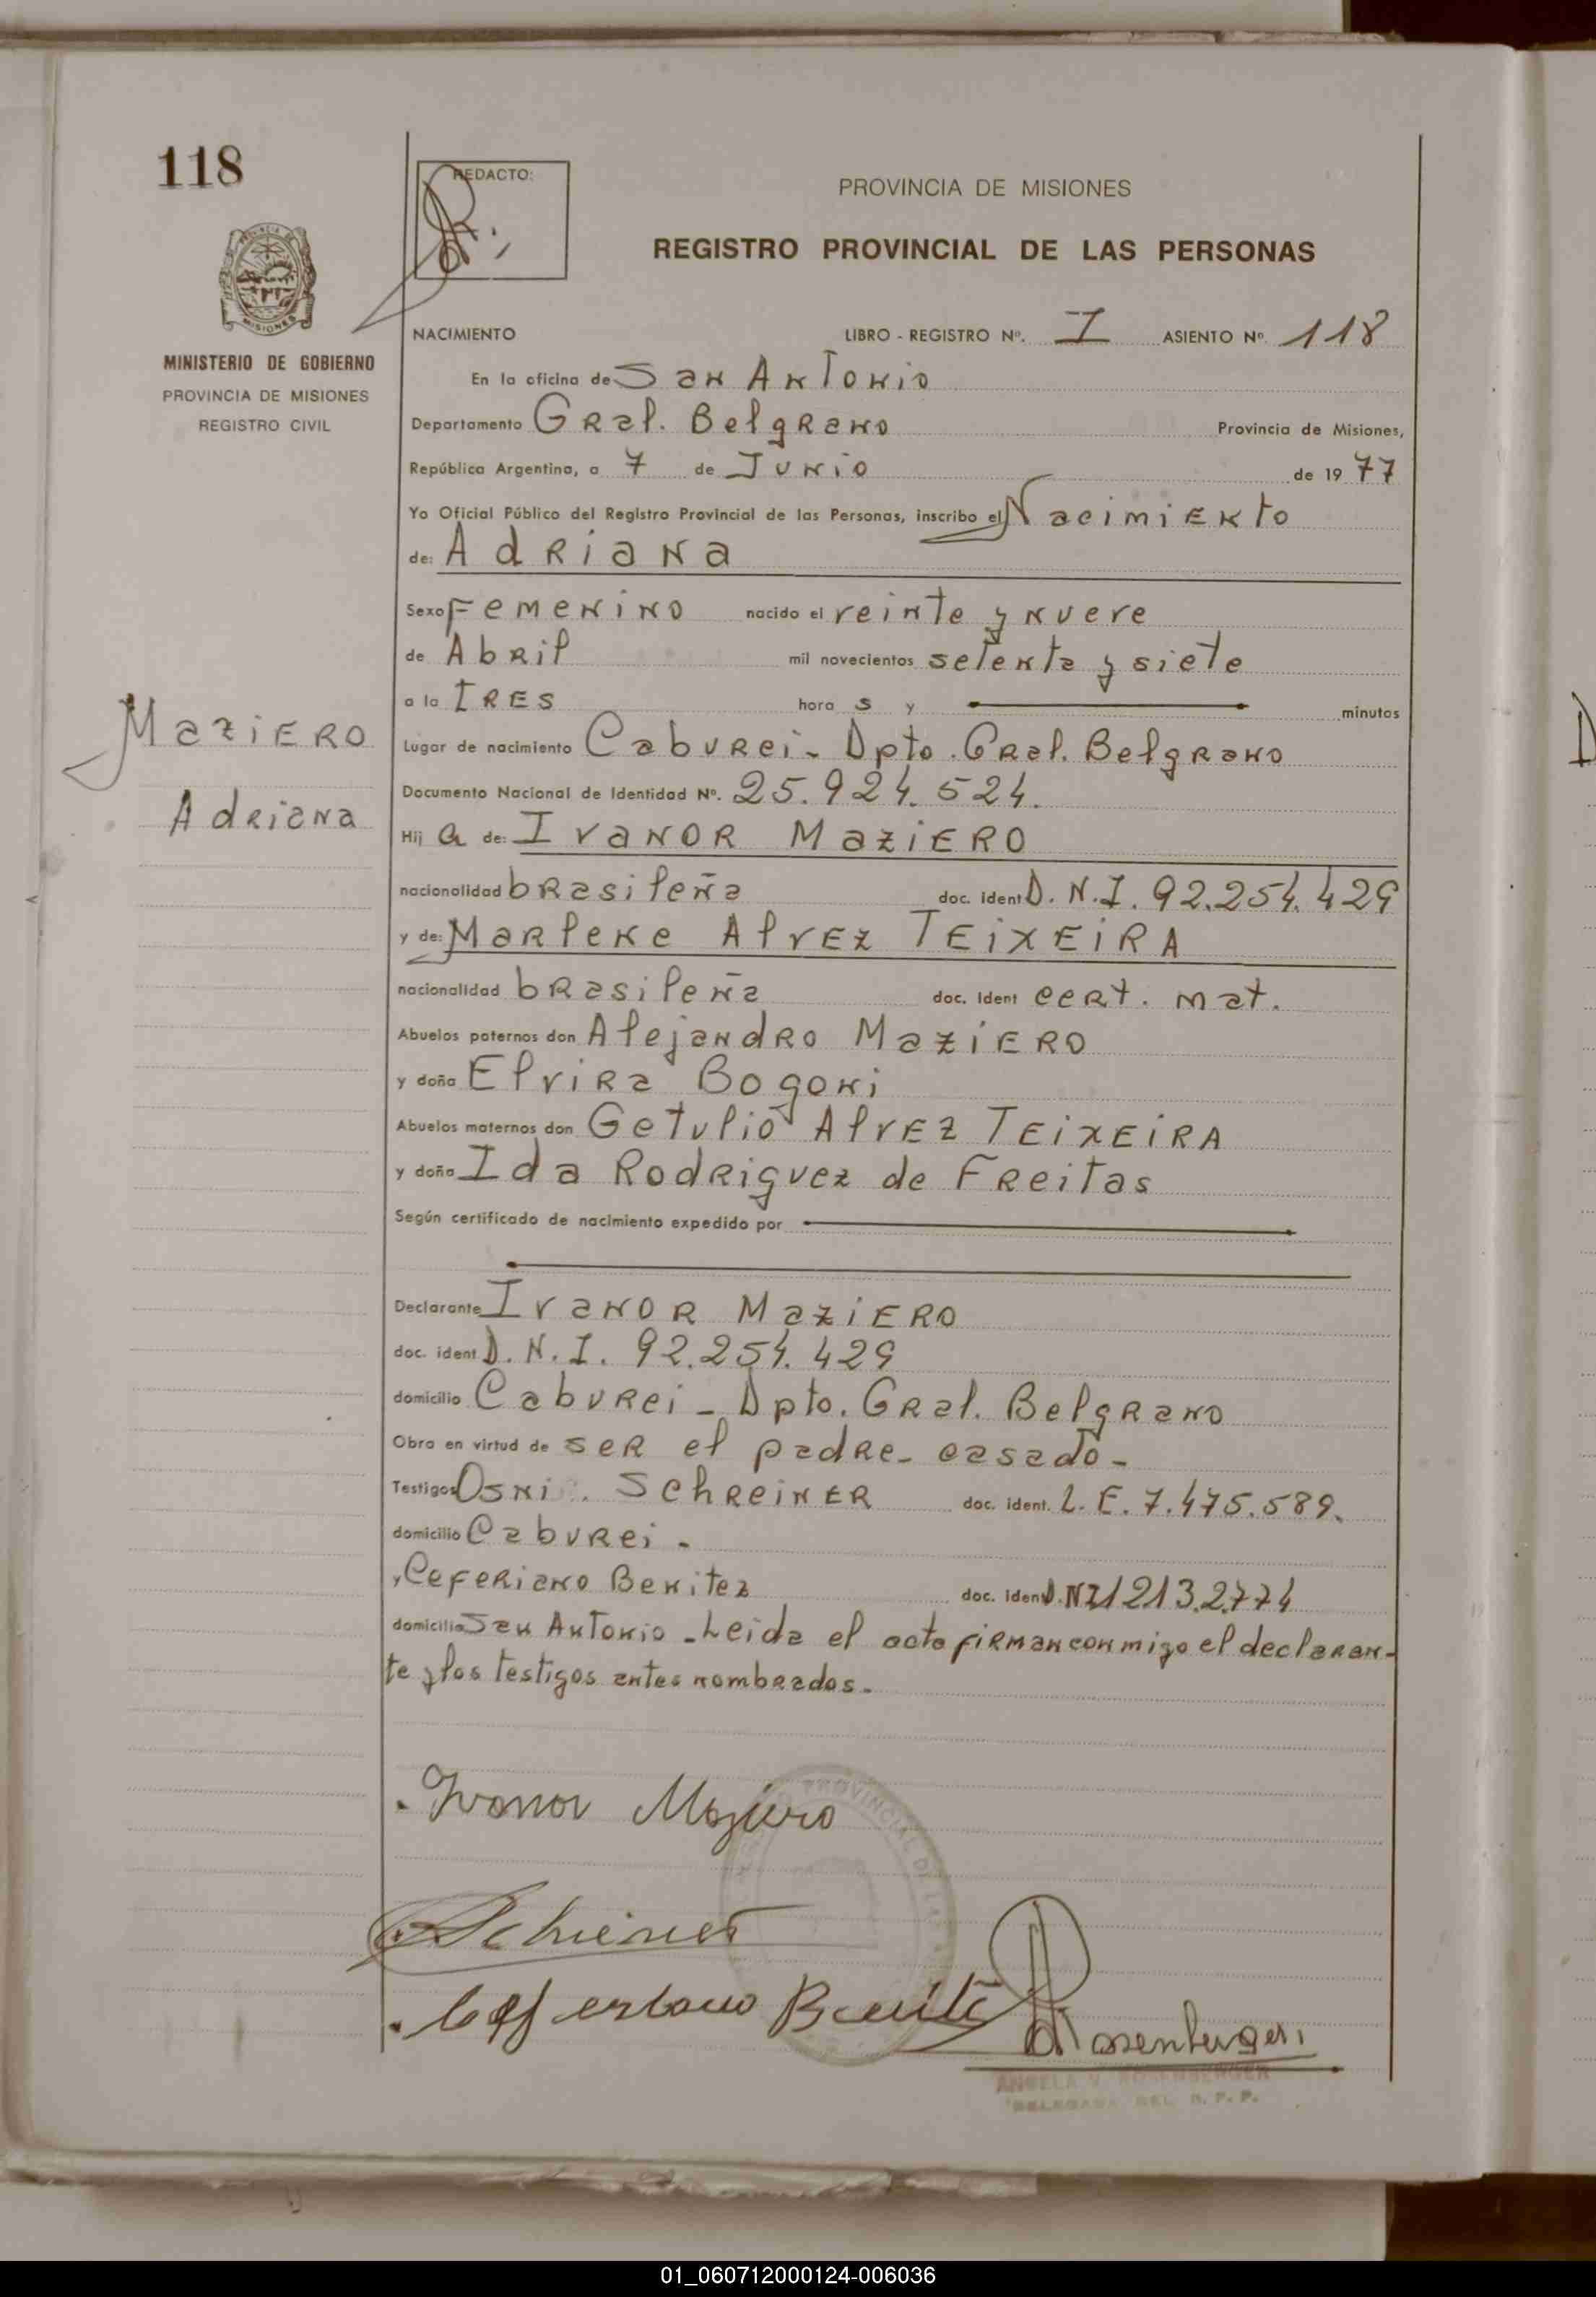 118
REDACTO:
PROVINCIA DE MISIONES
REGISTRO PROVINCIAL DE LAS PERSONAS
MISIONES
MINISTERIO DE GOBIERNO
PROVINCIA DE MISIONES
REGISTRO CIVIL
NACIMIENTO LIBRO - REGISTRO Nº. I ASIENTO Nº 118
En la oficina de San Antonio
Departamento Gral. Belgrano Provincia de Misiones,
República Argentina, a 7 de Junio de 1977
Yo Oficial Público del Registro Provincial de las Personas, inscribo el Nacimiento
de: Adriana
Sexo Femenino nacido el veinte y nueve
de Abril mil novecientos setenta y siete
a la TRES hora s y minutos
Maziero
Adriana
Lugar de nacimiento Caburei - Dpto. Gral. Belgrano
Documento Nacional de Identidad Nº. 25.924.524.
Hij a de: Ivanor Maziero
nacionalidad brasileña doc. ident D.N.I. 92.254.429
y de: Marlene Alvez Teixeira
nacionalidad brasileña doc. ident cert. mat.
Abuelos paternos don Alejandro Maziero
y doña Elvira Bogoni
Abuelos maternos don Getulio Alvez Teixeira
y doña Ida Rodriguez de Freitas
Según certificado de nacimiento expedido por
Declarante Ivanor Maziero
doc. ident D.N.I. 92.254.429
domicilio Caburei - Dpto. Gral. Belgrano
Obra en virtud de ser el padre - casado -
Testigos Osni Schreiner doc. ident. L.E. 7.475.589.
domicilio Caburei -
y Ceferiano Benitez doc. ident D.NI 213.2.774
domicilio San Antonio - Leida el acta firman conmigo el declaran-
te y los testigos antes nombrados.
Ivanor Maziero
Schreiner
Ceferiano Benitez
Rosenberger
ANGELA V. ROSENBERGER
DELEGADA DEL R. P. P.
01_060712000124-006036